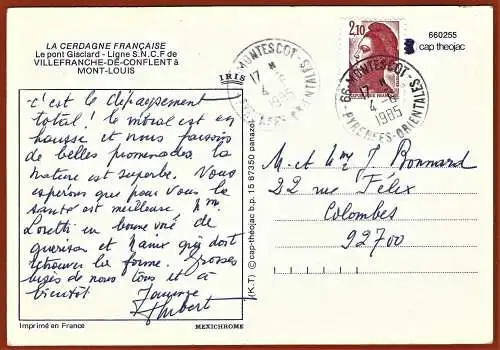 LA CERDAGNE FRANÇAISE
Le pont Gisclard - Ligne S.N.C.F de
VILLEFRANCHE-DE-CONFLENT à
MONT-LOUIS
IRIS
66 - MONTESCOT
17 H
4 -6
1985
PYRENEES-ORIENTALES
2,10
REPUBLIQUE FRANÇAISE
66 - MONTESCOT
17 H
4 -6
1985
PYRENEES-ORIENTALES
660255
cap theojac
C'est le dépaysement
total ! le moral est en
hausse et nous faisons
de belles promenades. la
nature est superbe. Nous
espérons que pour vous la
santé est meilleure. Mme
Loretti en bonne voie de
guérison et grés doit
retrouver la forme. Grosses
bises de nous tous et à
bientôt
Hubert
(K.T) © cap-théojac b.p. 15 87350 panazol
M. et Mme J Bonnard
22 rue Félix
Colombes
92700
Imprimé en France
MEXICHROME